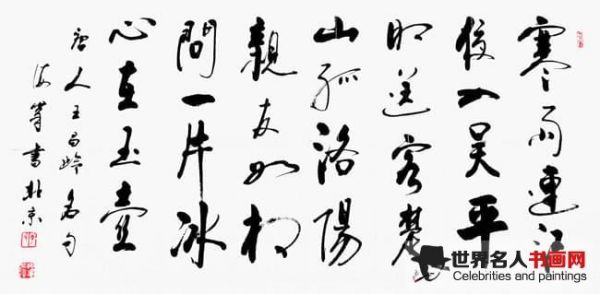 寒雨連江
夜入吴平
明送客楚
山孤洛陽
親友如相
問一片冰
心在玉壺
唐人王昌龄名句
海書北京
世界名人书画网
Celebrities and paintings